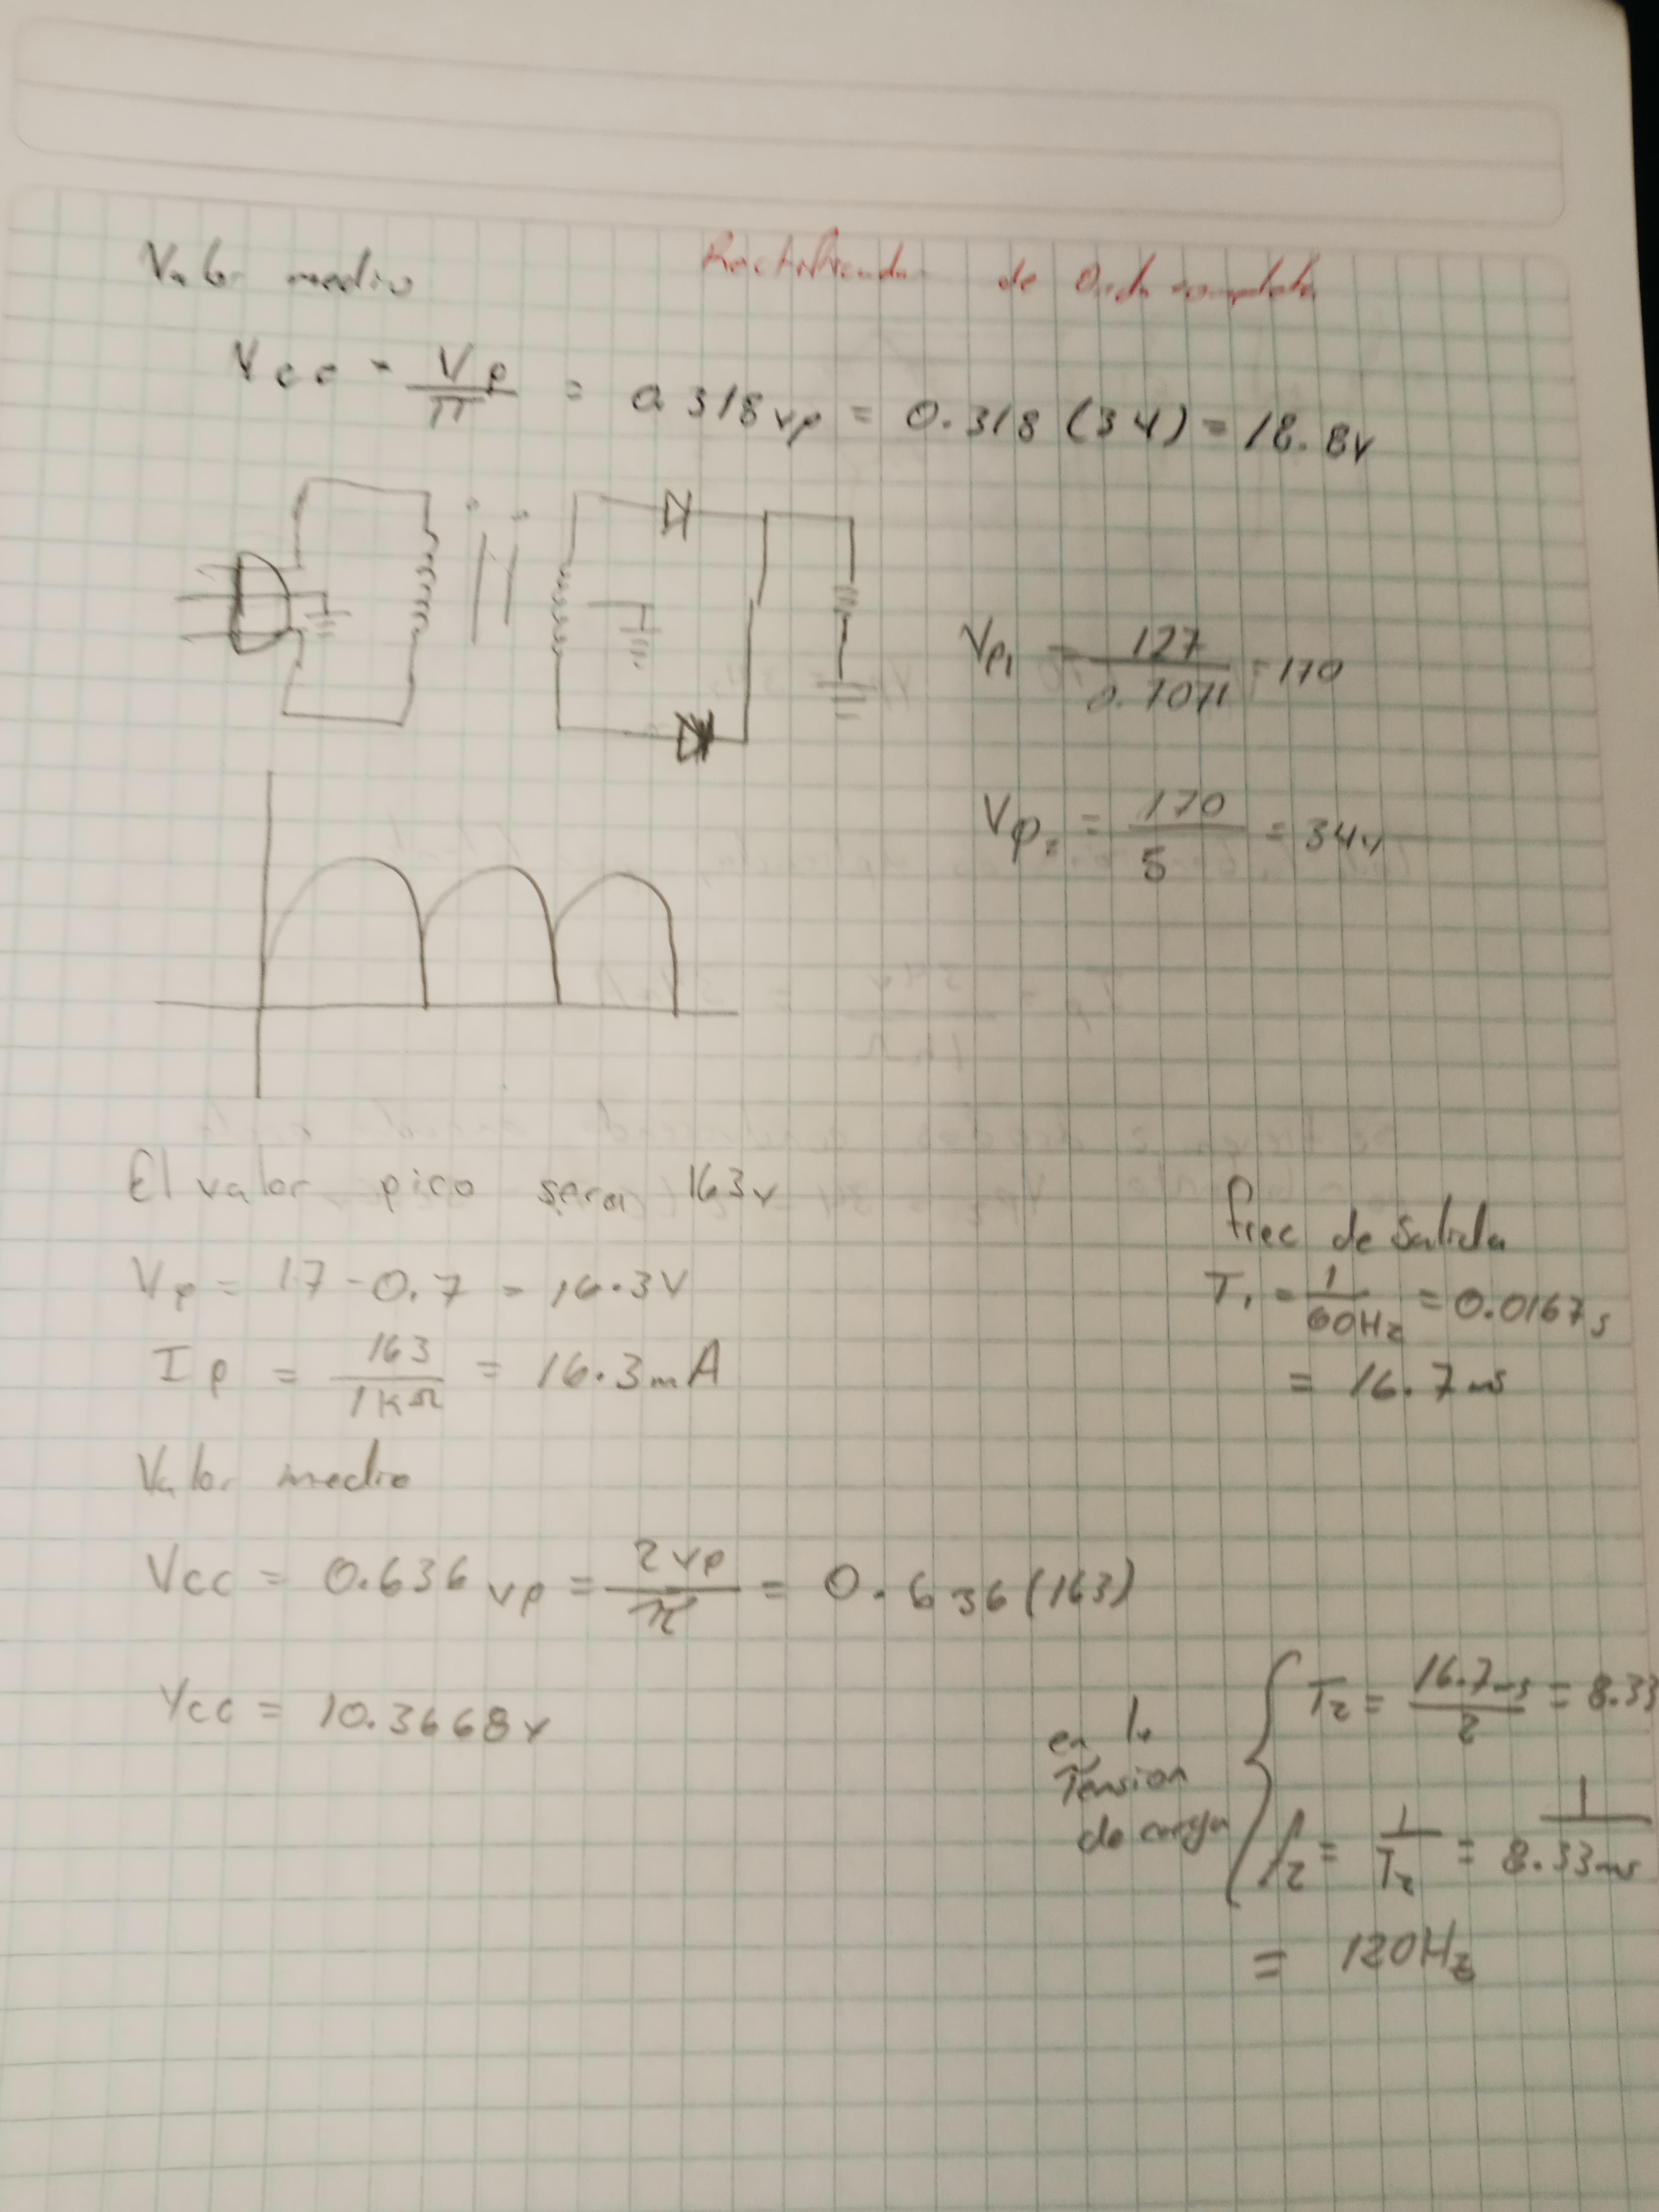 Valor medio
Rectificador de Onda completa
Vcc = Vp/π = 0.318 vp = 0.318 (34) = 18.8v
Vp1 = 127/0.7071 = 170
Vp2 = 170/5 = 34v
El valor pico sera 163v
Vp = 17 - 0.7 = 16.3V
Ip = 163/1kΩ = 16.3mA
Valor medio
Vcc = 0.636 vp = 2vp/π = 0.636(163)
Vcc = 10.3668v
frec de Salida
T1 = 1/60Hz = 0.0167s
= 16.7ms
en la
Tension
de carga
T2 = 16.7ms/2 = 8.33
f2 = 1/T2 = 1/8.33ms
= 120Hz